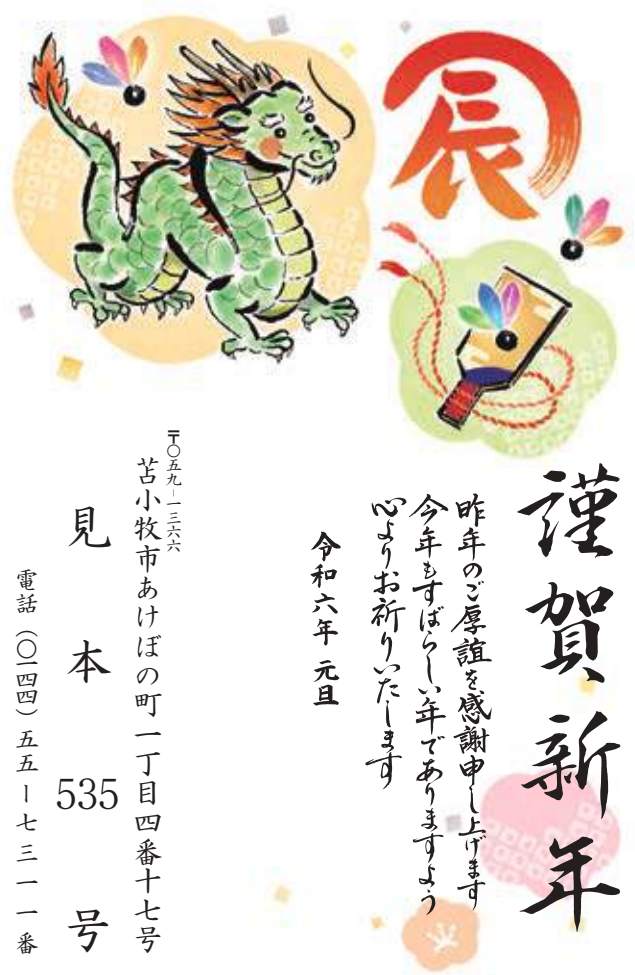 辰
謹賀新年
昨年のご厚誼を感謝申し上げます
今年もすばらしい年でありますよう
心よりお祈りいたします
令和六年 元旦
〒〇五九－一三六六
苫小牧市あけぼの町一丁目四番十七号
見本535号
電話（〇一四四）五五－七三一一番